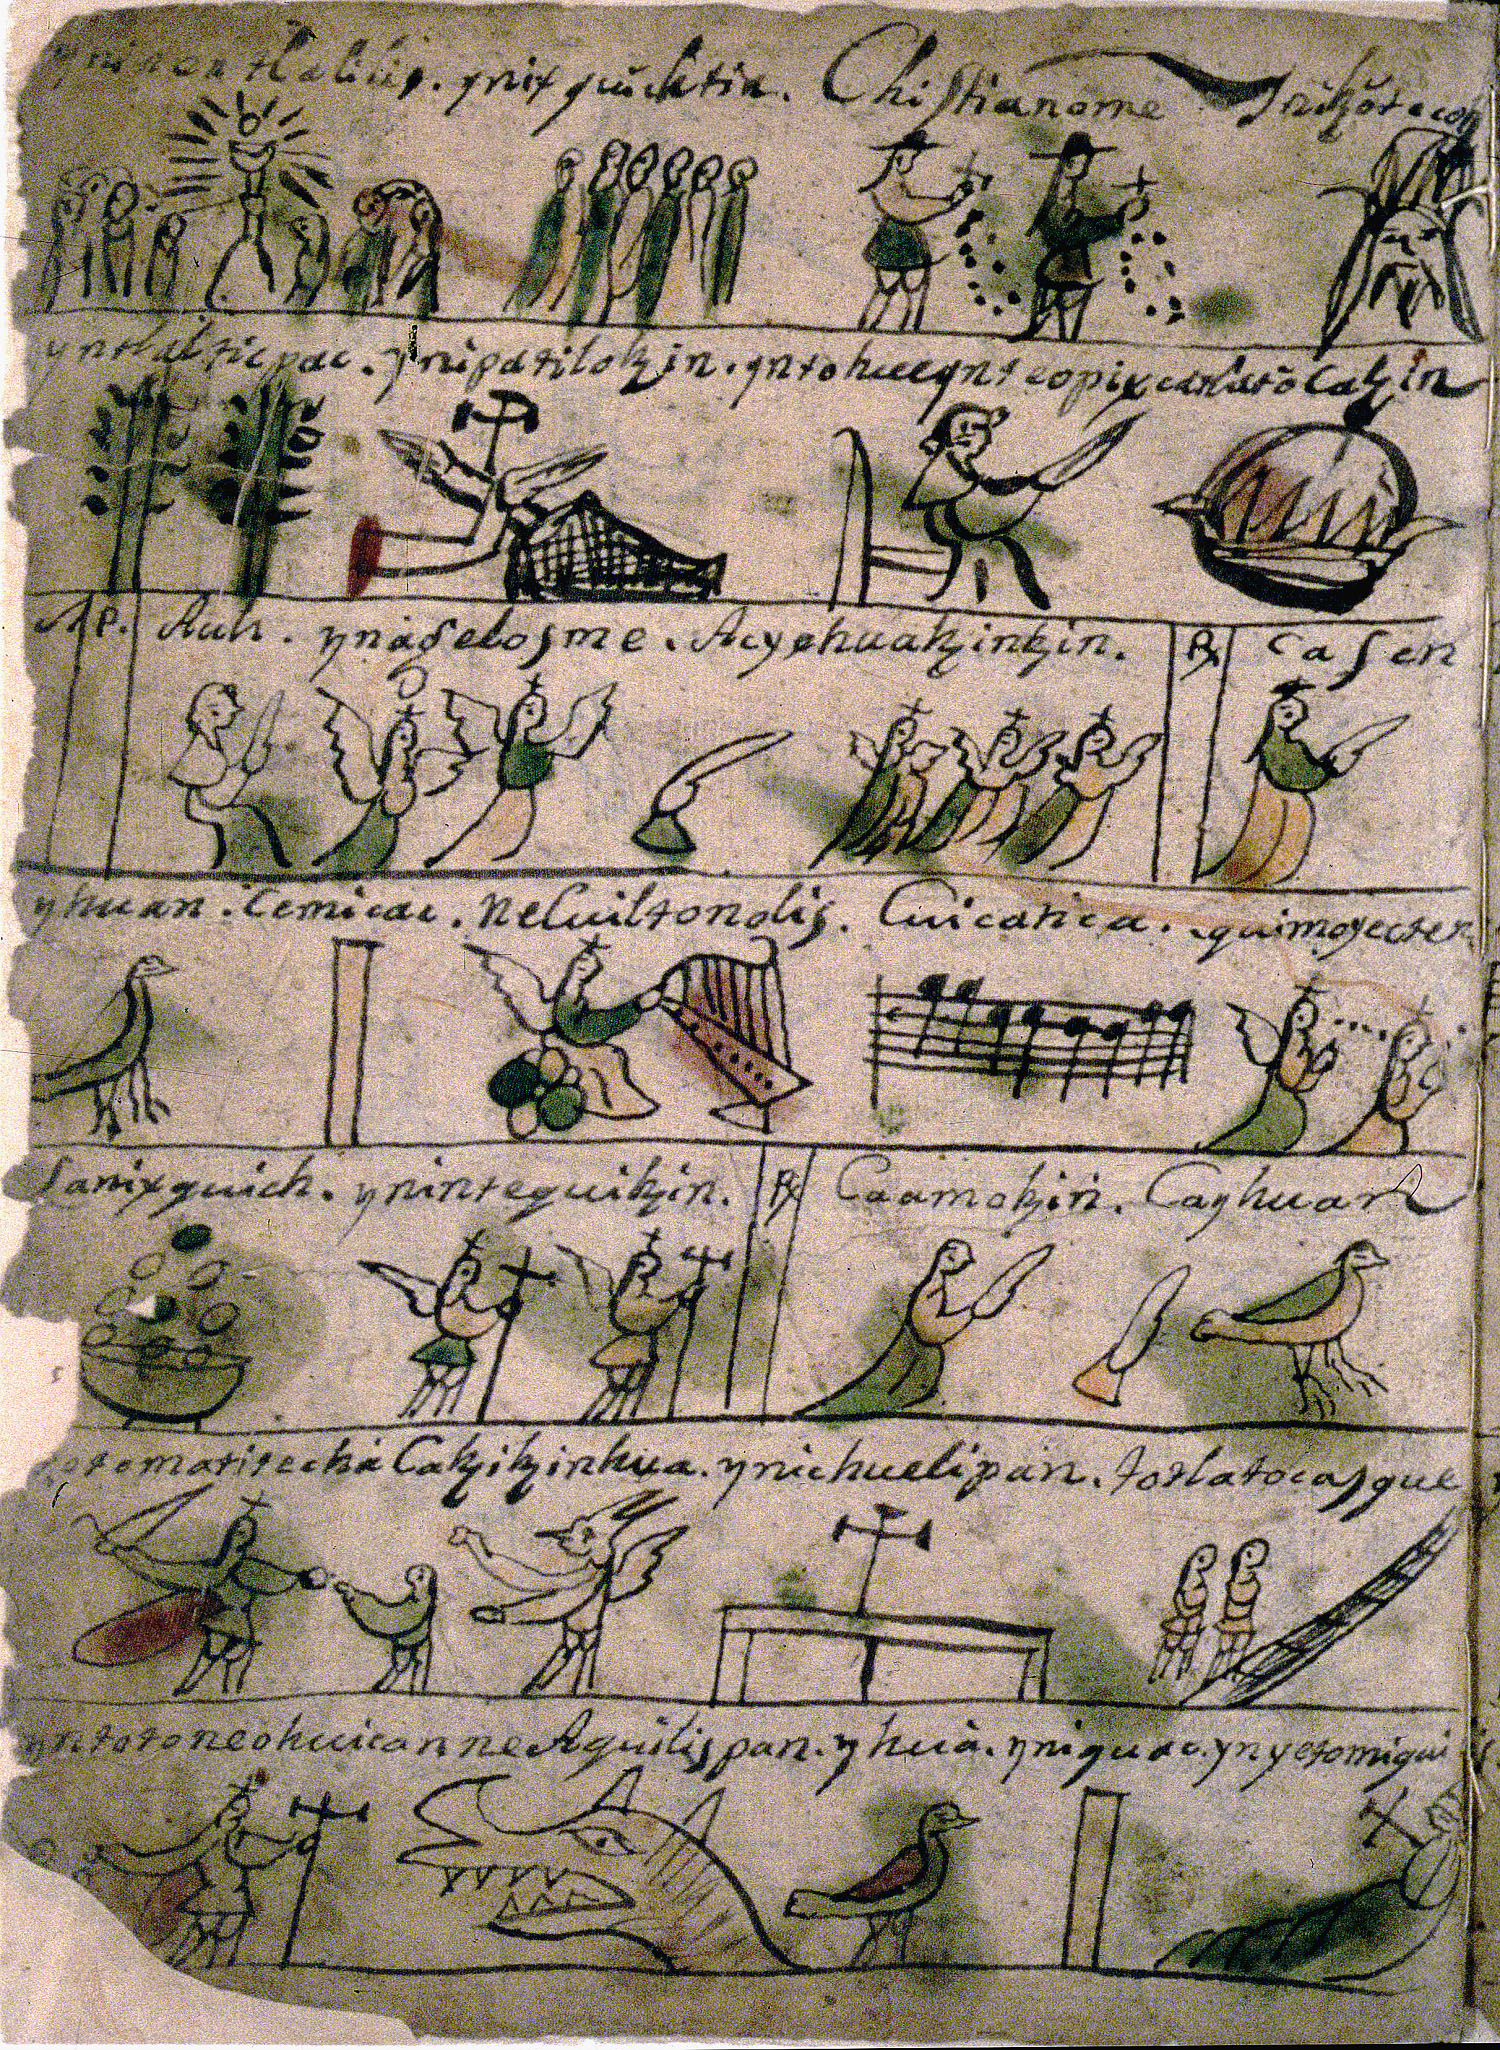 yninen tlalilis. ynix quichtin. Chistianome
yntlalticpac. ynipatilotzin. yntohueeynteopixcatlatocatzin
P. Auh. ynageloſme. Acyehuatzintzin. R Ca ſen
yhuan. Cemicac. neCuiltonolis. Cuicatica. quimoyecten
ſanixquich. ynintequitzin. R Caamotzin. Cayhuan
Catzitzinhua. ynichuelipan. totlatocaſque
yntotoneohuicanneAquilispan. yhua. yniquac. ynyetomiqui